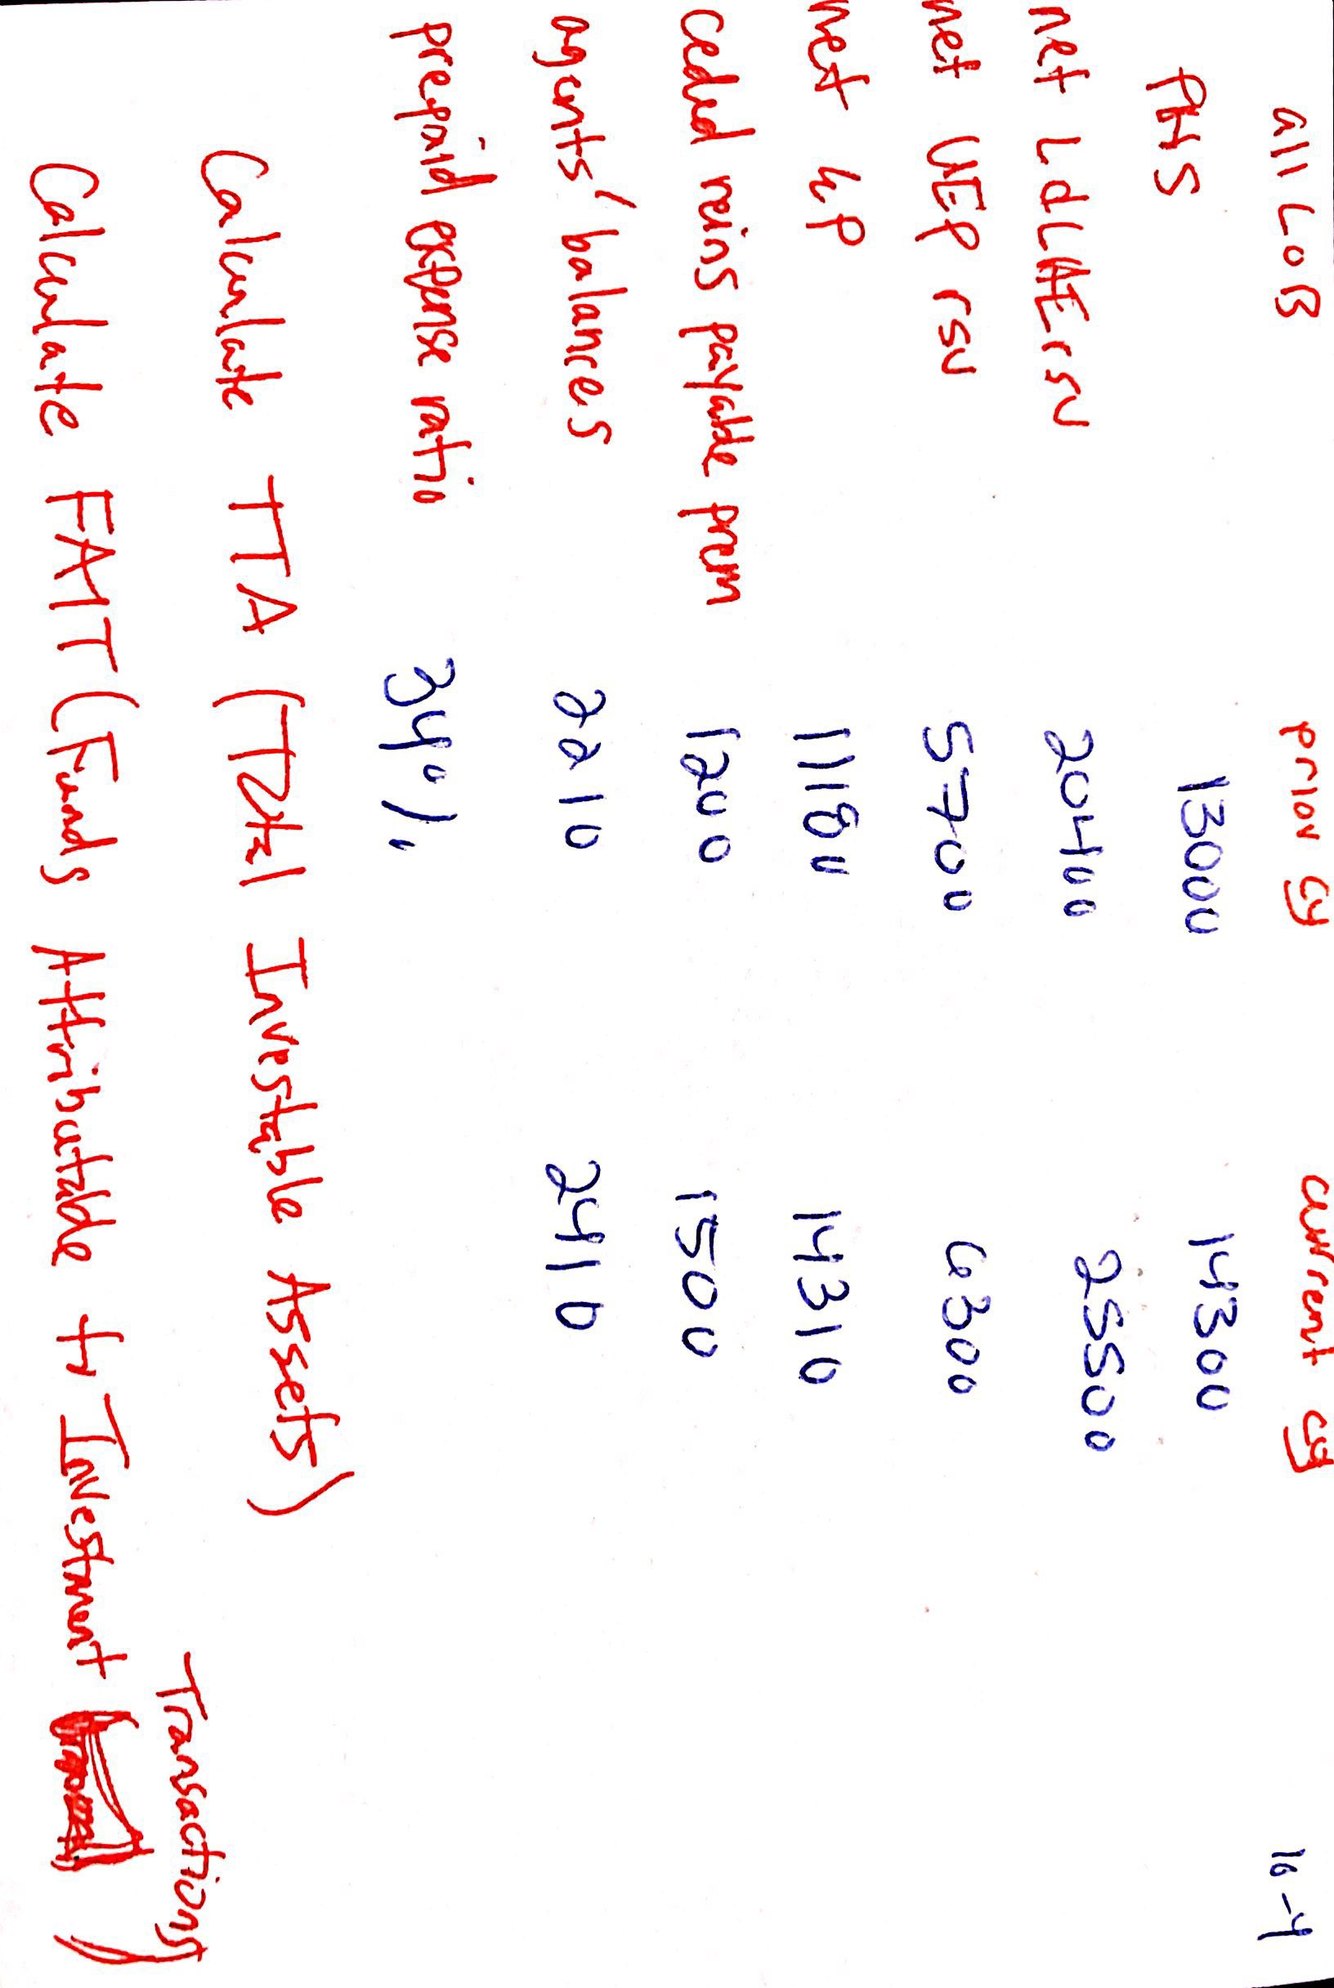 all LoB prior cy current cy 16-4
PHS 13000 14300
net L&LAE rsv 20400 25500
net UEP rsv 5700 6300
net WP 11180 14310
ceded reins payable prem 1200 1500
agents' balances 2210 2410
prepaid expense ratio 34%
Calculate TIA (Total Investable Assets)
Transactions
Calculate FAIT (Funds Attributable to Investment )